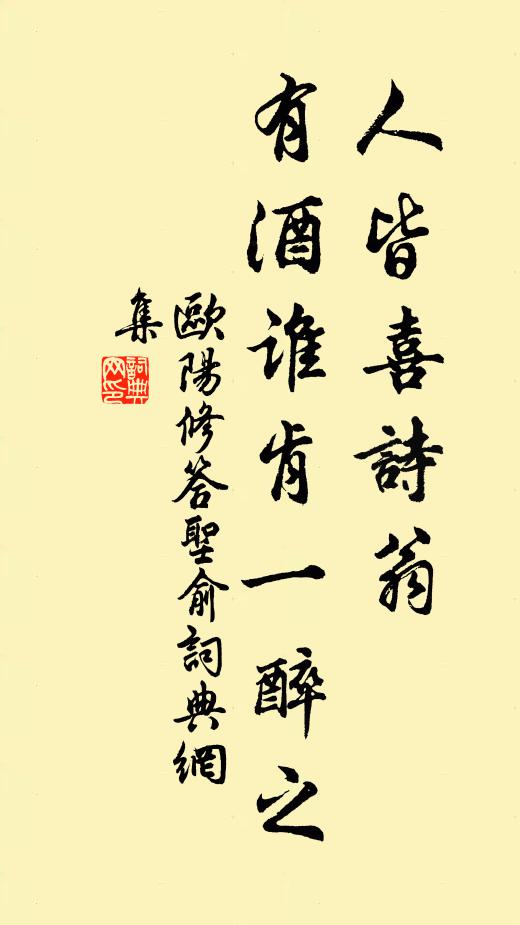 人皆喜詩翁
有酒誰肯一醉之
歐陽修答聖俞詞典網
集
詞典網印